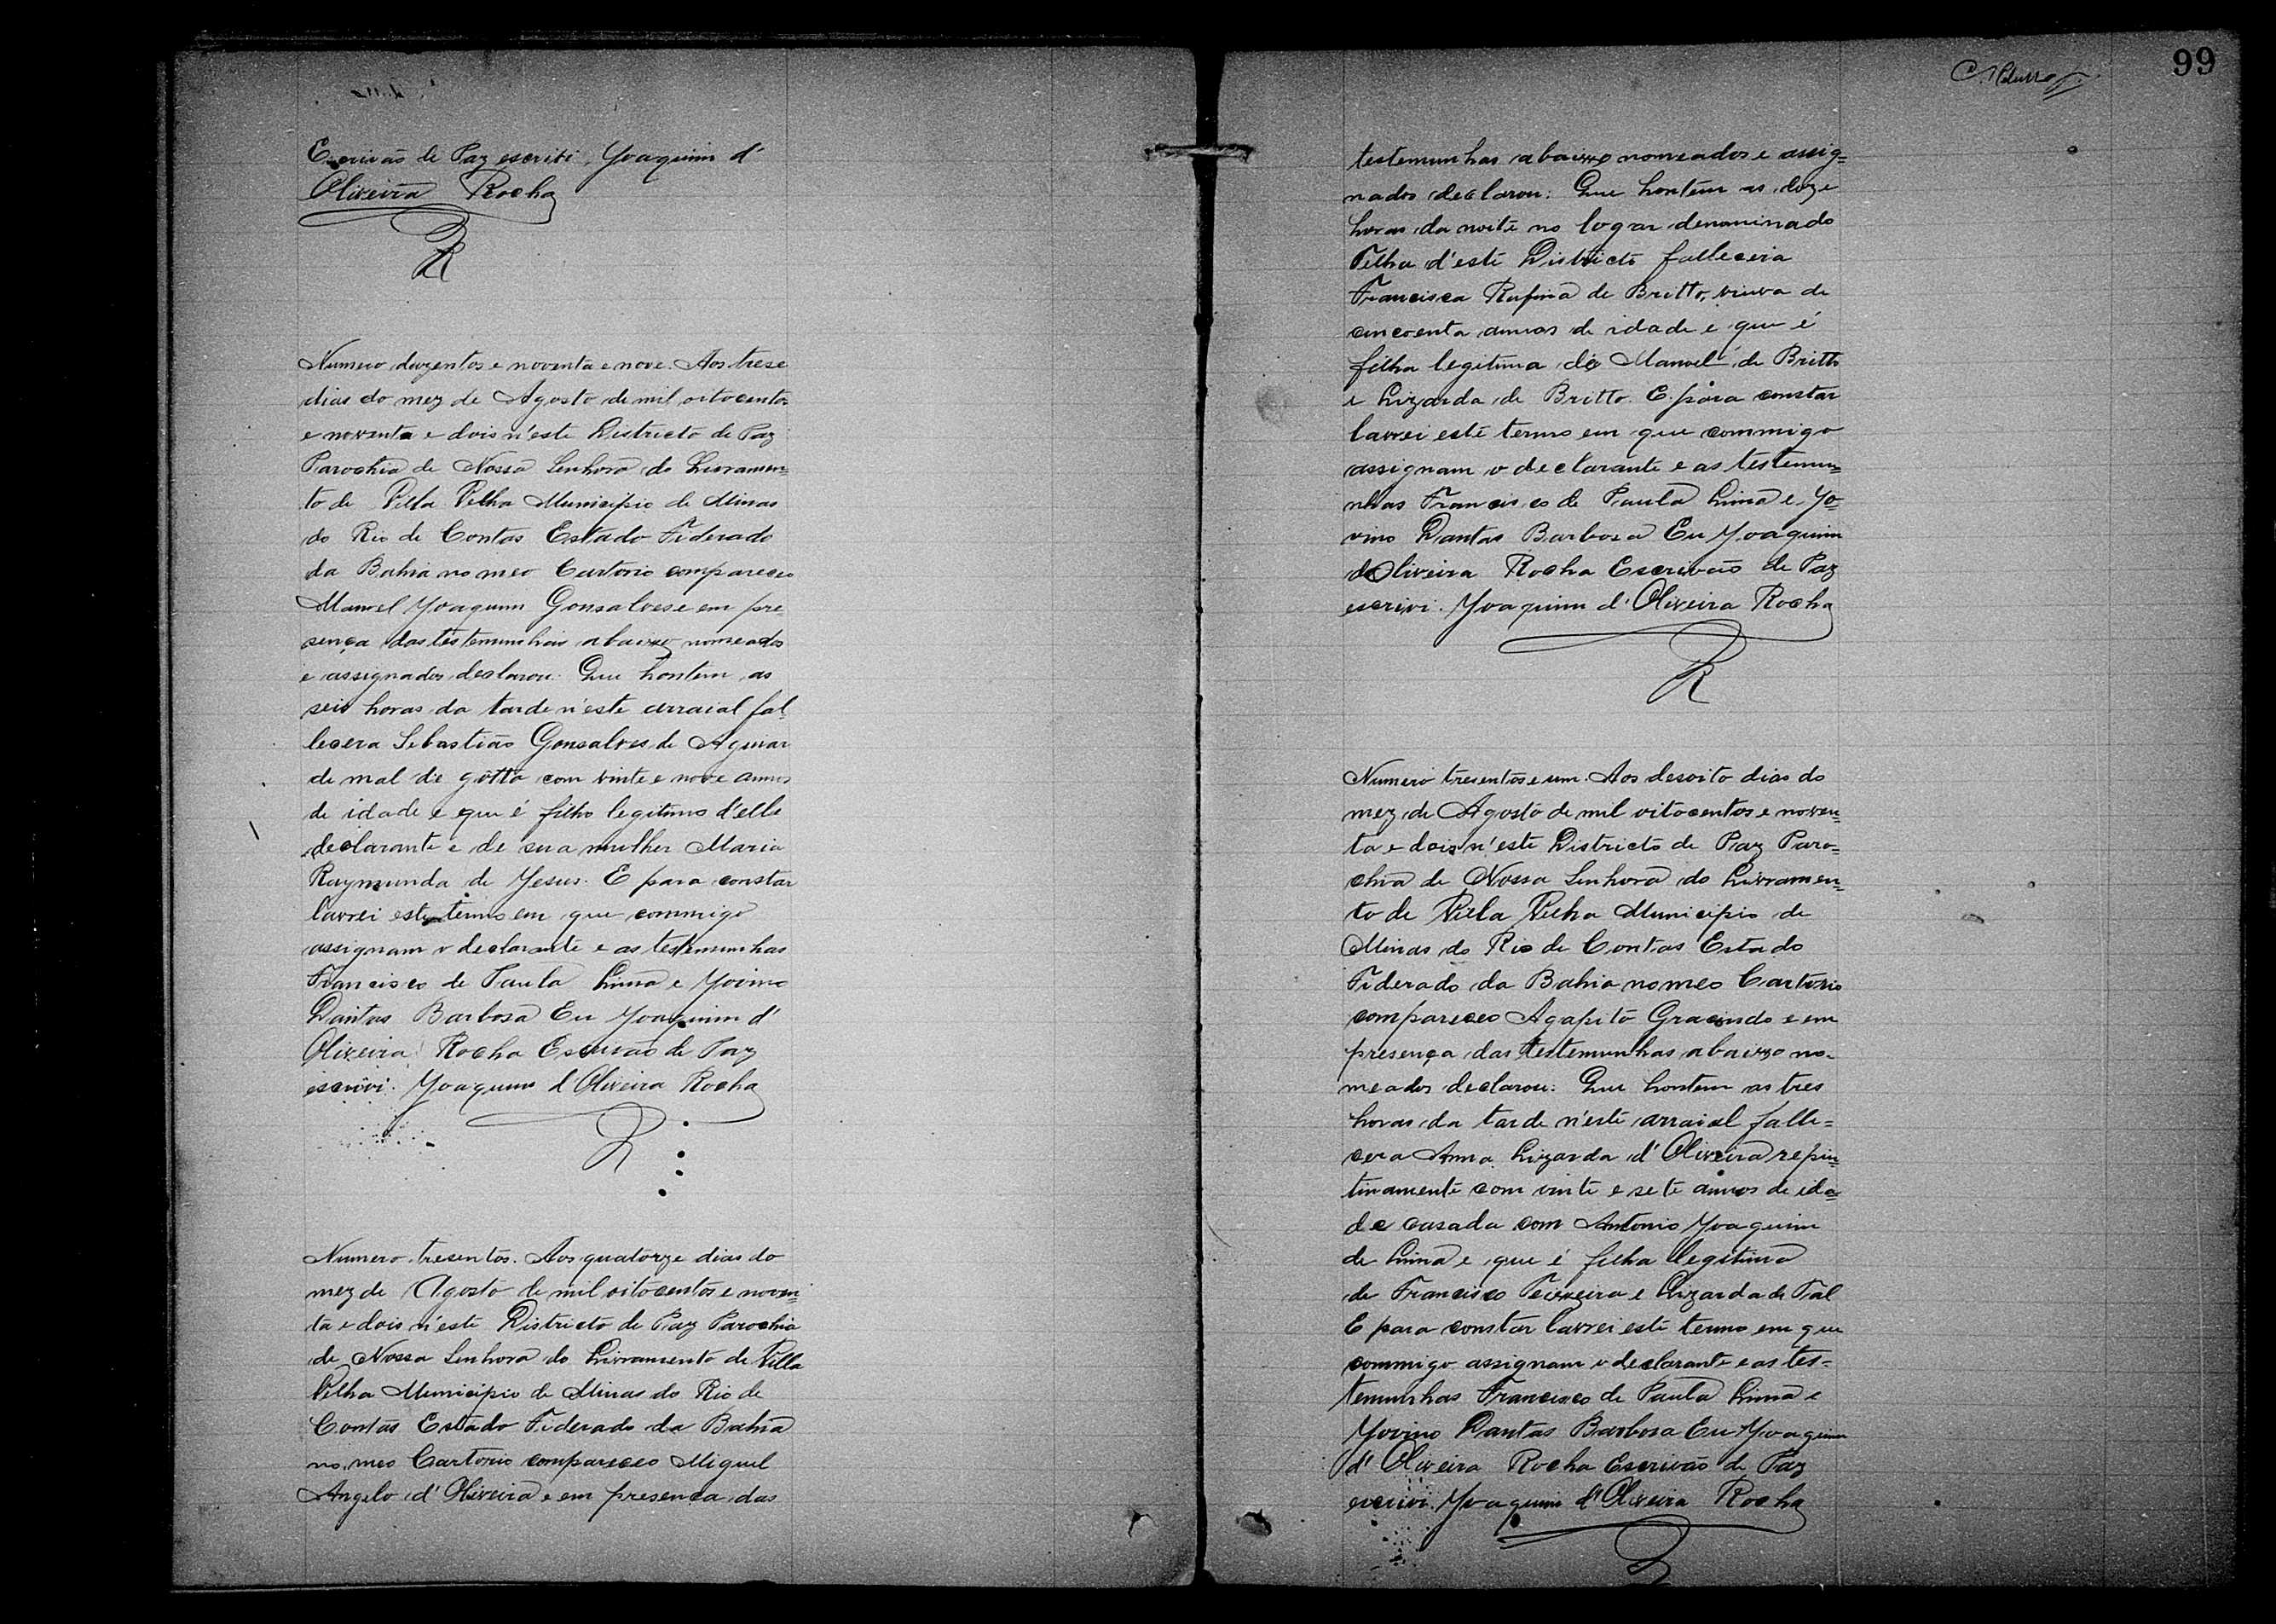 Escrivão de Paz escrivi. Joaquim d'
Oliveira Rocha
R
Numero duzentos e noventa e nove. Aos trese
dias do mez de Agosto de mil oitocentos
e noventa e dois n'este Districto de Paz
Parochia de Nossa Senhora do Livramen=
to de Villa Velha Municipio de Minas
do Rio de Contas Estado Federado
da Bahia no meo Cartorio compareceo
Manoel Joaquim Gonsalves e em pre
sença das testemunhas abaixo nomeados
e assignados declarou: Que hontem as
seis horas da tarde n'este arraial fal
lecera Sebastião Gonsalves de Aguiar
de mal de gotta com vinte e nove annos
de idade e que é filho legitimo d'elle
declarante e de sua mulher Maria
Raymunda de Jesus. E para constar
lavrei este termo em que commigo
assignam o declarante e as testemunhas
Francisco de Paula Lima e Jovino
Dantas Barbosa Eu Joaquim d'
Oliveira Rocha Escrivão de Paz
escrivi. Joaquim d'Oliveira Rocha
R
Numero tresentos. Aos quatorze dias do
mez de Agosto de mil oitocentos e noven=
ta e dois n'este Districto de Paz Parochia
de Nossa Senhora do Livramento de Villa
Velha Municipio de Minas do Rio de
Contas Estado Federado da Bahia
no meo Cartorio compareceo Miguel
Angelo d'Oliveira e em presença das
99
testemunhas abaixo nomeados e assig=
nados declarou: Que hontem as doze
horas da noite no logar denominado
Telha d'este Districto fallecera
Francisca Rufina de Britto, viuva de
cincoenta annos de idade e que é
filha legitima de Manoel de Britto
e Lizarda de Britto. E para constar
lavrei este termo em que commigo
assignam o declarante e as testemu=
nhas Francisco de Paula Lima e Jo=
vino Dantas Barbosa Eu Joaquim
d'Oliveira Rocha Escrivão de Paz
escrivi. Joaquim d'Oliveira Rocha
R
Numero tresentos e um. Aos desoito dias do
mez de Agosto de mil oitocentos e noven=
ta e dois n'este Districto de Paz Paro=
chia de Nossa Senhora do Livramen=
to de Villa Velha Municipio de
Minas do Rio de Contas Estado
Federado da Bahia no meo Cartorio
compareceo Agapito Gracindo e em
presença das testemunhas abaixo no-
meados declarou: Que hontem as tres
horas da tarde n'este arraial falle=
cera Anna Lizarda d'Oliveira repin=
tinamente com vinte e sete annos de ida=
de casada com Antonio Joaquim
de Lima e que é filha legitima
de Francisco Teixeira e Lizarda de Tal
E para constar lavrei este termo em que
commigo assignam o declarante e as tes=
temunhas Francisco de Paula Lima e
Jovino Dantas Barbosa Eu Joaquim
d'Oliveira Rocha Escrivão de Paz
escrivi. Joaquim d'Oliveira Rocha